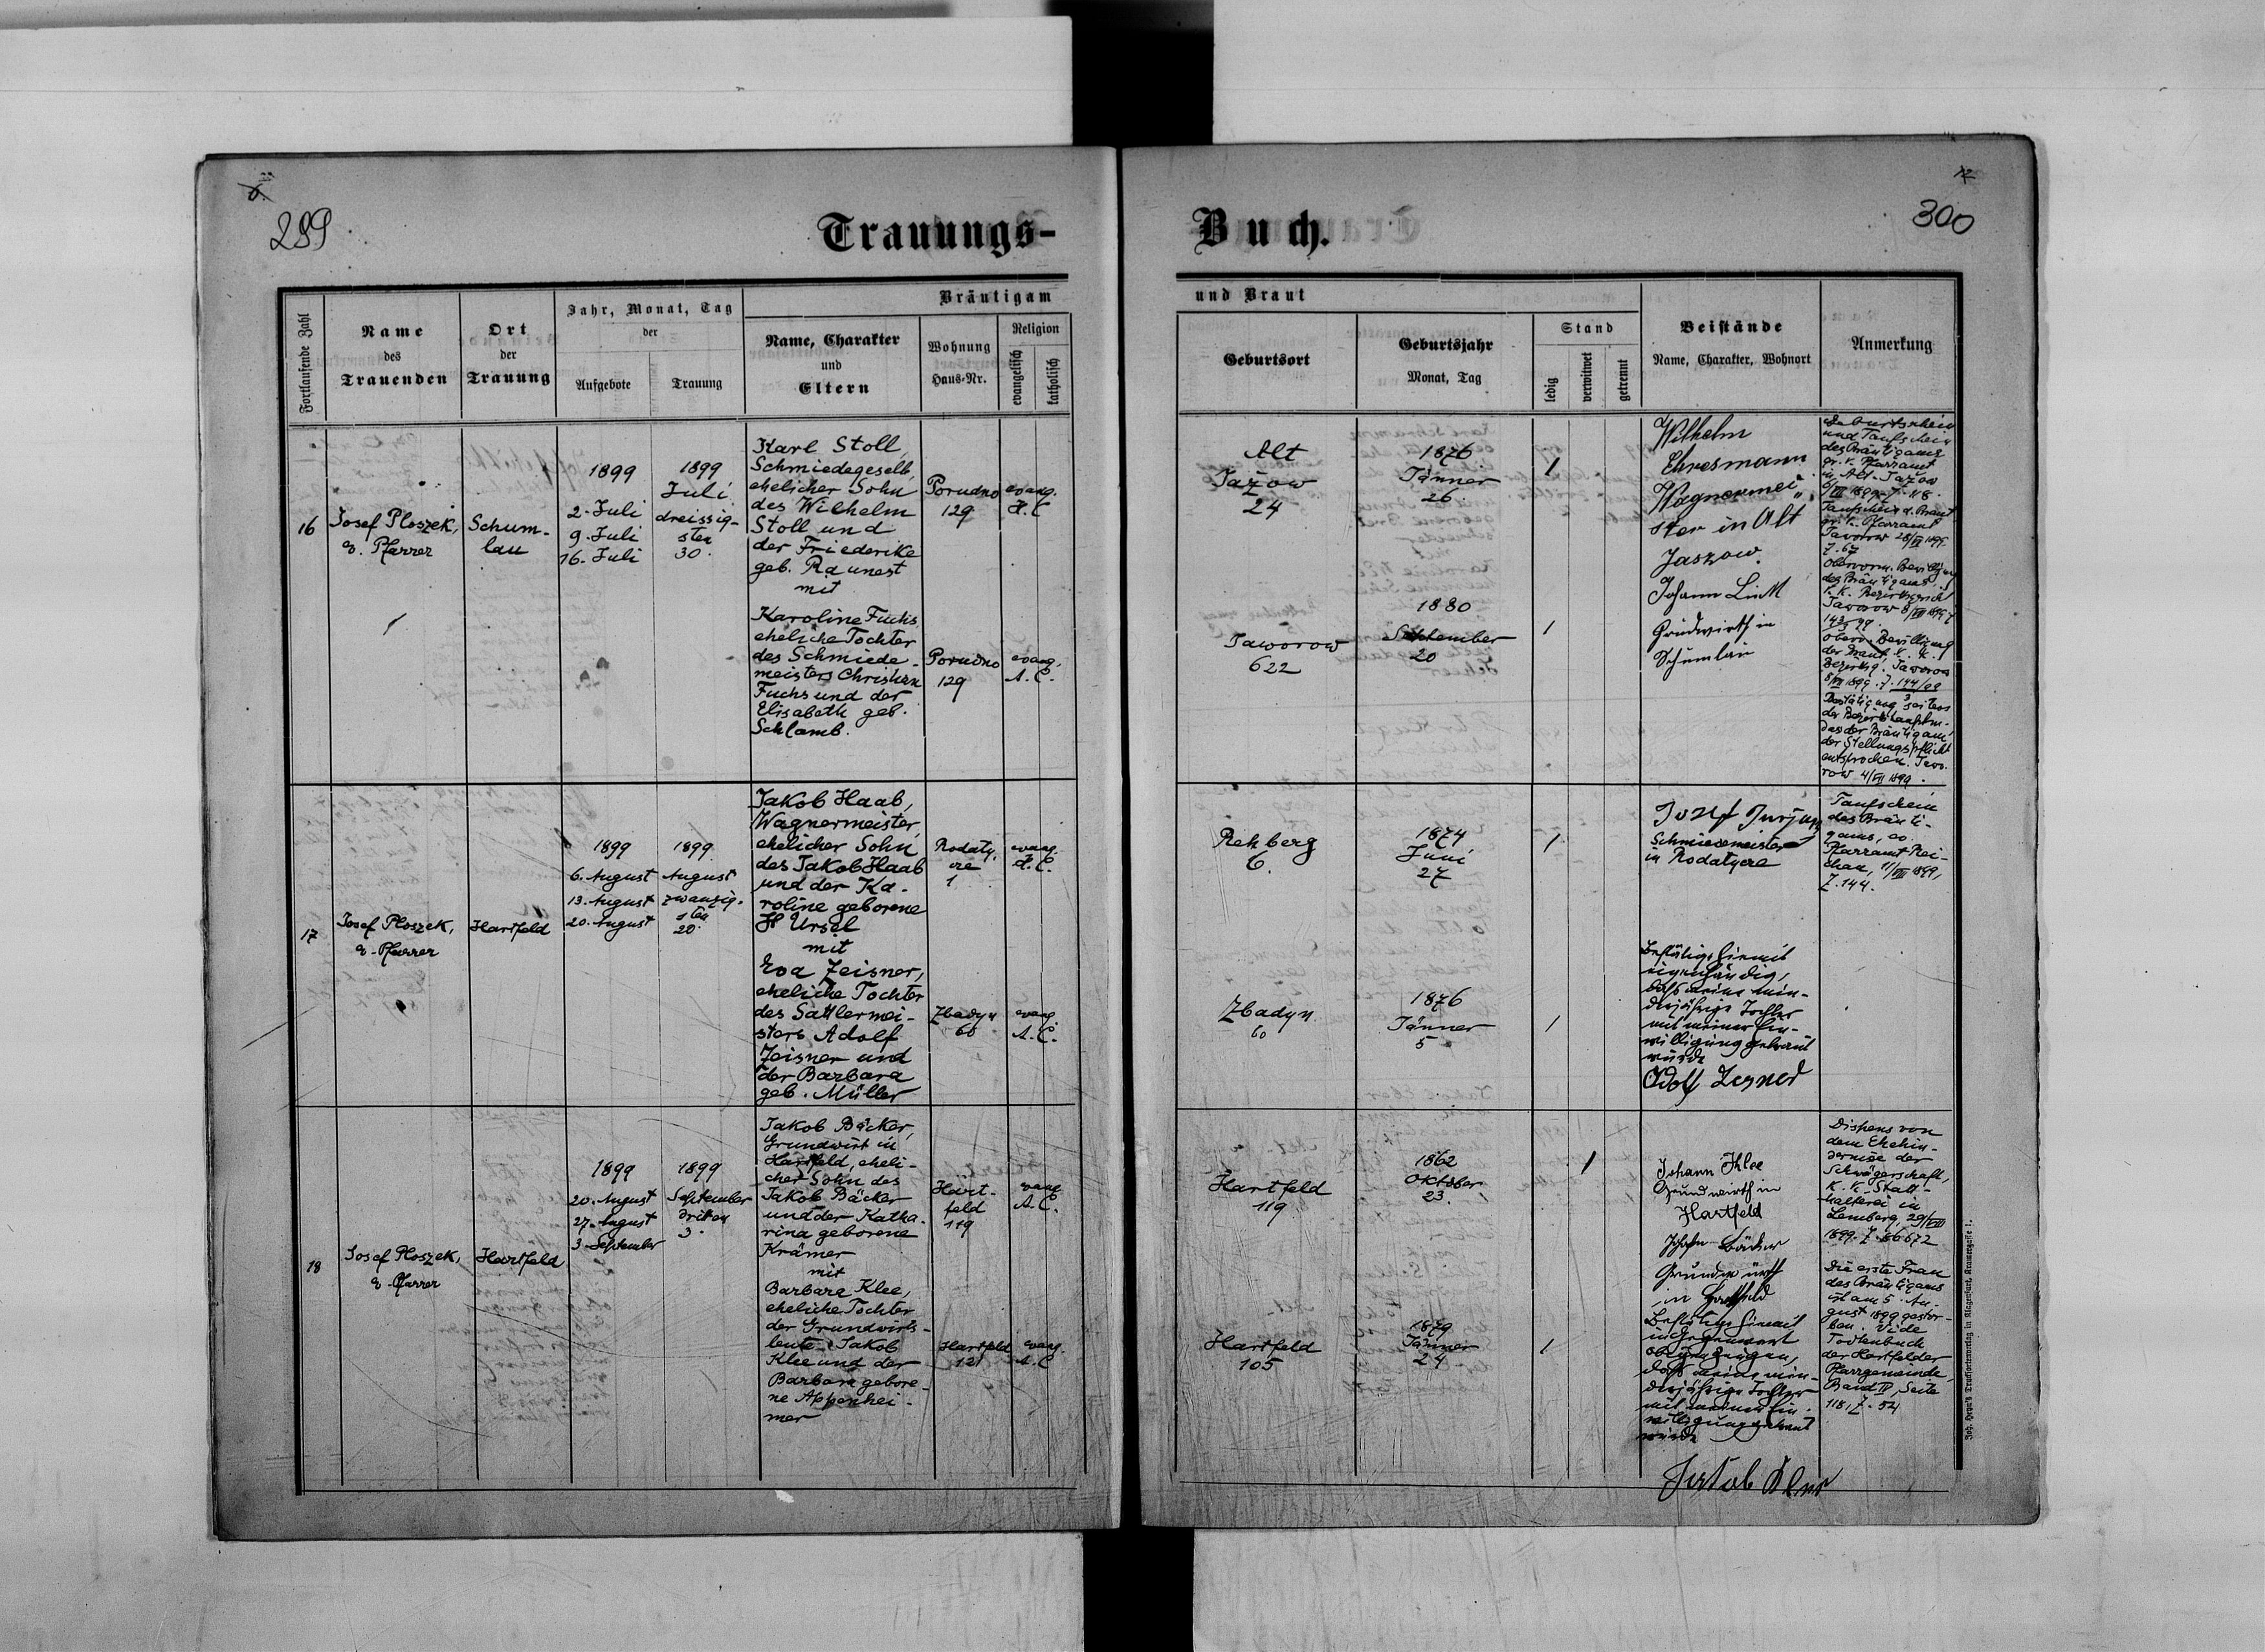 299
300
Trauungs-
Buch.
Fortlaufende Zahl
Name
des
Trauenden
Ort
der
Trauung
Jahr, Monat, Tag
der
Aufgebote
Trauung
Bräutigam
Name, Charakter
und
Eltern
Wohnung
Haus-Nr.
Religion
evangelisch
katholisch
und Braut
Geburtsort
Geburtsjahr
Monat, Tag
Stand
ledig
verwitwet
getrennt
Beistände
Name, Charakter, Wohnort
Anmerkung
16
Josef Ploszek,
e. Pfarrer
Schum-
lau
1899
2. Juli
9. Juli
16. Juli
1899
Juli
dreissig-
sten
30.
Karl Stoll,
Schmiedegeselle,
ehelicher Sohn
des Wilhelm
Stoll und
der Friederike
geb. Raunest
mit
Karoline Fuchs
eheliche Tochter
des Schmiede-
meisters Christian
Fuchs und der
Elisabeth geb.
Schlamb.
Porudno
129
evang.
A. C.
Porudno
129
evang.
A. C.
Alt
Jažow
24
1876
Jänner
26.
1
Jaworow
622
1880
September
20
1
Wilhelm
Ehresmann
Wagnermei-
ster in Alt
Jaszow.
Johann Link
Grundwirth in
Schumlau
Geburtsschein
und Taufschein
des Bräutigams
gr. k. Pfarramt
in Alt-Jažow
Taufschein d. Braut
gr. k. Pfarramt
Jaworow
Z. 67
obervorm. Bewilligung
des Bräutigams,
k. k. Bezirksgericht
Jaworow
143/99.
oberv. Bewilligung
der Braut, k. k.
Bezirksg. Jaworow
8/VII 1899. Z. 144/99
Bestätigung seitens
der Bezirkshauptm.
das der Bräutigam
der Stellungspflicht
entsprochen. Jawo-
row 4/VII 1899.
17
Josef Ploszek,
e. Pfarrer
Hartfeld
1899
6. August
13. August
20. August
1899
August
zwanzig-
sten
20.
Jakob Haab,
Wagnermeister,
ehelicher Sohn
des Jakob Haab
und der Ka-
roline geborene
Ursel
mit
Eva Zeisner,
eheliche Tochter
des Sattlermei-
sters Adolf
Zeisner und
der Barbara
geb. Müller
Rodaty-
cze
1
evang.
A. C.
Zbadyn
60
evang.
A. C.
Rehberg
6.
1874
Juni
27
1
Zbadyn
60
1876
Jänner
5
1
Schmiedemeister
in Rodatycze
Bestätige hiemit
eigenhändig,
daß meine min-
derjährige Tochter
mit meiner Ein-
willigung getraut
wurde
Adolf Zeisner
Taufschein
des Bräuti-
gams, ev.
Pfarramt Rei-
chau, 11/VIII 1899,
Z. 144.
18
Josef Ploszek,
e. Pfarrer
Hartfeld
1899
20. August
27. August
3. September
1899
September
dritten
3.
Jakob Bäcker,
Grundwirt in
Hartfeld, eheli-
cher Sohn des
Jakob Bäcker
und der Katha-
rina geborene
Krämer
mit
Barbara Klee,
eheliche Tochter
der Grundwirts-
leute Jakob
Klee und der
Barbara gebore-
ne Appenhei-
mer
Hart-
feld
119
evang.
A. C.
Hartfeld
121
evang.
A. C.
Hartfeld
119
1862
Oktober
23.
1
Hartfeld
105
1879
Jänner
24
1
Johann Klee
Grundwirth in
Hartfeld
Johann Bäcker
Grundwirth
in Hartfeld
Bestätige hiemit
in Gegenwart
obiger Zeugen,
daß meine min-
derjährige Tochter
mit meiner Ein-
willigung getraut
wurde
Jakob Klee
Dispens von
dem Ehehin-
dernisse der
Schwägerschaft,
k. k. Statt-
halterei in
Lemberg, 29/VIII
1899. Z. 86672
Die erste Frau
des Bräutigams
ist am 5. Au-
gust 1899 gestor-
ben. Vide
Todtenbuch
der Hartfelder
Pfarrgemeinde,
Band IV, Seite
118, Z. 54
Joh. Heyn's Drucksortenverlag in Klagenfurt, Kramergasse 1.